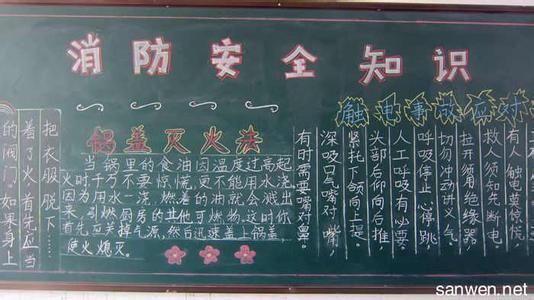 消防安全知识
触电事故应对
有人触电莫惊慌，
救人须知先断电，
拉开须用绝缘器。
切勿冲动讲义气，
呼吸停止心停跳，
人工呼吸有必要。
头部后仰向后推，
紧托下颌向上提。
深吸口气嘴对嘴，
有时需要嘴对鼻。
锅盖灭火法
当锅里的食油因温度过高起
火时千万不要惊慌，更不能用水浇，
因为用水一浇，燃着的油就会溅出
来，引燃厨房的其他可燃物，这时你
首先应关掉气源，然后迅速盖上锅盖，
使火熄灭。
把衣服脱下……
着了火，首先应当
的阀门。如果身上
sanwen.net